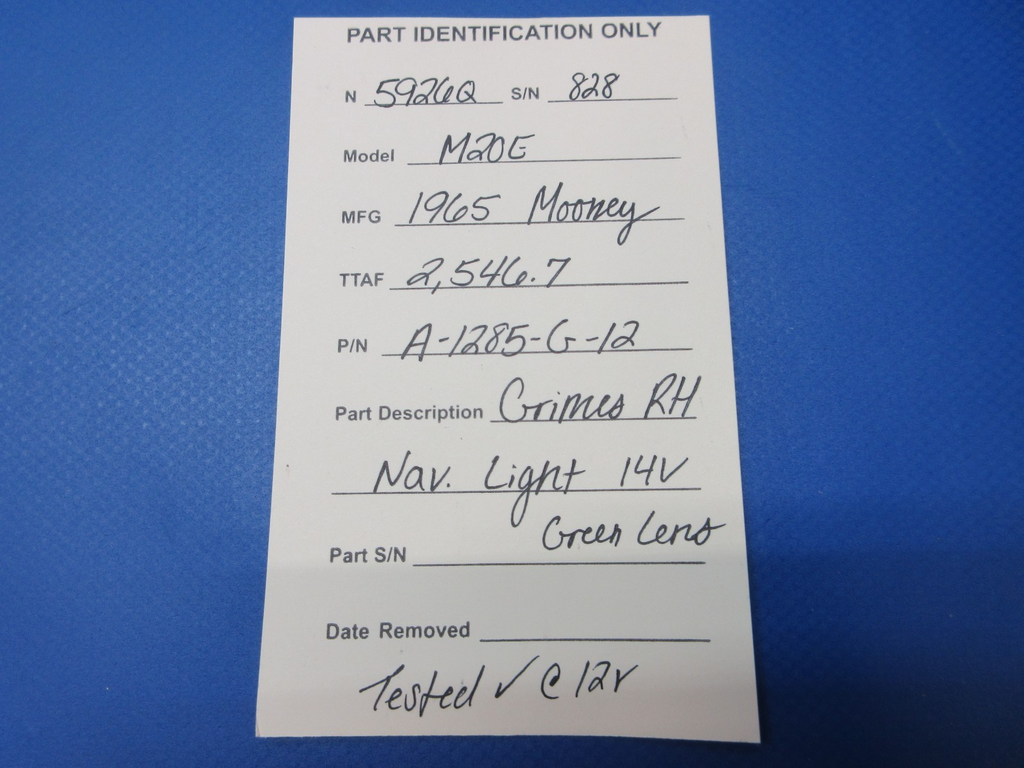 PART IDENTIFICATION ONLY
N 5926Q S/N 828
Model M20E
MFG 1965 Mooney
TTAF 2,546.7
P/N A-1285-G-12
Part Description Grimes RH
Nav. Light 14V
Green Lens
Part S/N
Date Removed
Tested ✓ @ 12v